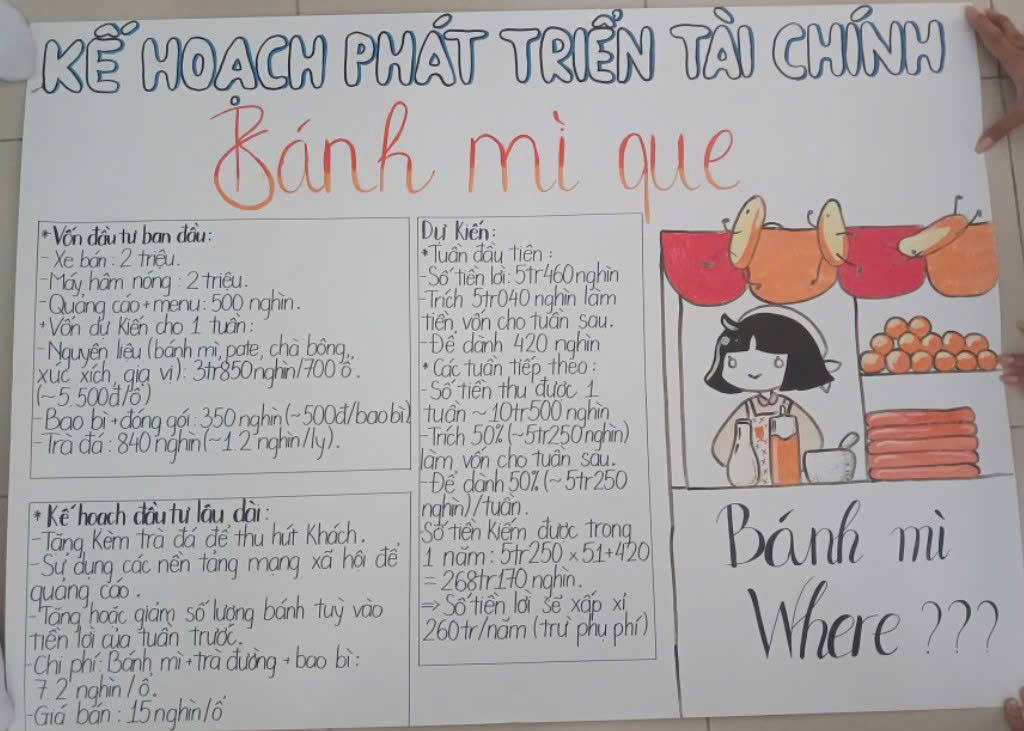 KẾ HOẠCH PHÁT TRIỂN TÀI CHÍNH
Bánh mì que
* Vốn đầu tư ban đầu:
- Xe bán: 2 triệu.
- Máy hâm nóng: 2 triệu.
- Quảng cáo + menu: 500 nghìn.
+ Vốn dự kiến cho 1 tuần:
- Nguyên liệu (bánh mì, pate, chà bông,
xúc xích, gia vị): 3tr850 nghìn/700 ổ.
(~5.500đ/ổ)
- Bao bì + đóng gói: 350 nghìn (~500đ/bao bì)
- Trà đá: 840 nghìn (~1.2 nghìn/ly).
* Kế hoạch đầu tư lâu dài:
- Tặng kèm trà đá để thu hút khách.
- Sử dụng các nền tảng mạng xã hội để
quảng cáo.
- Tăng hoặc giảm số lượng bánh tuỳ vào
tiền lời của tuần trước.
- Chi phí: Bánh mì + trà đường + bao bì:
7.2 nghìn/ổ.
- Giá bán: 15 nghìn/ổ
Dự kiến:
* Tuần đầu tiên:
- Số tiền lời: 5tr460 nghìn
- Trích 5tr040 nghìn làm
tiền vốn cho tuần sau.
- Để dành 420 nghìn
* Các tuần tiếp theo:
- Số tiền thu được 1
tuần ~ 10tr500 nghìn
- Trích 50% (~5tr250 nghìn)
làm vốn cho tuần sau.
- Để dành 50% (~5tr250
nghìn)/tuần.
Số tiền kiếm được trong
1 năm: 5tr250 x 51 + 420
= 268tr170 nghìn.
⇒ Số tiền lời sẽ xấp xỉ
260tr/năm (trừ phụ phí)
Bánh mì
Where ???